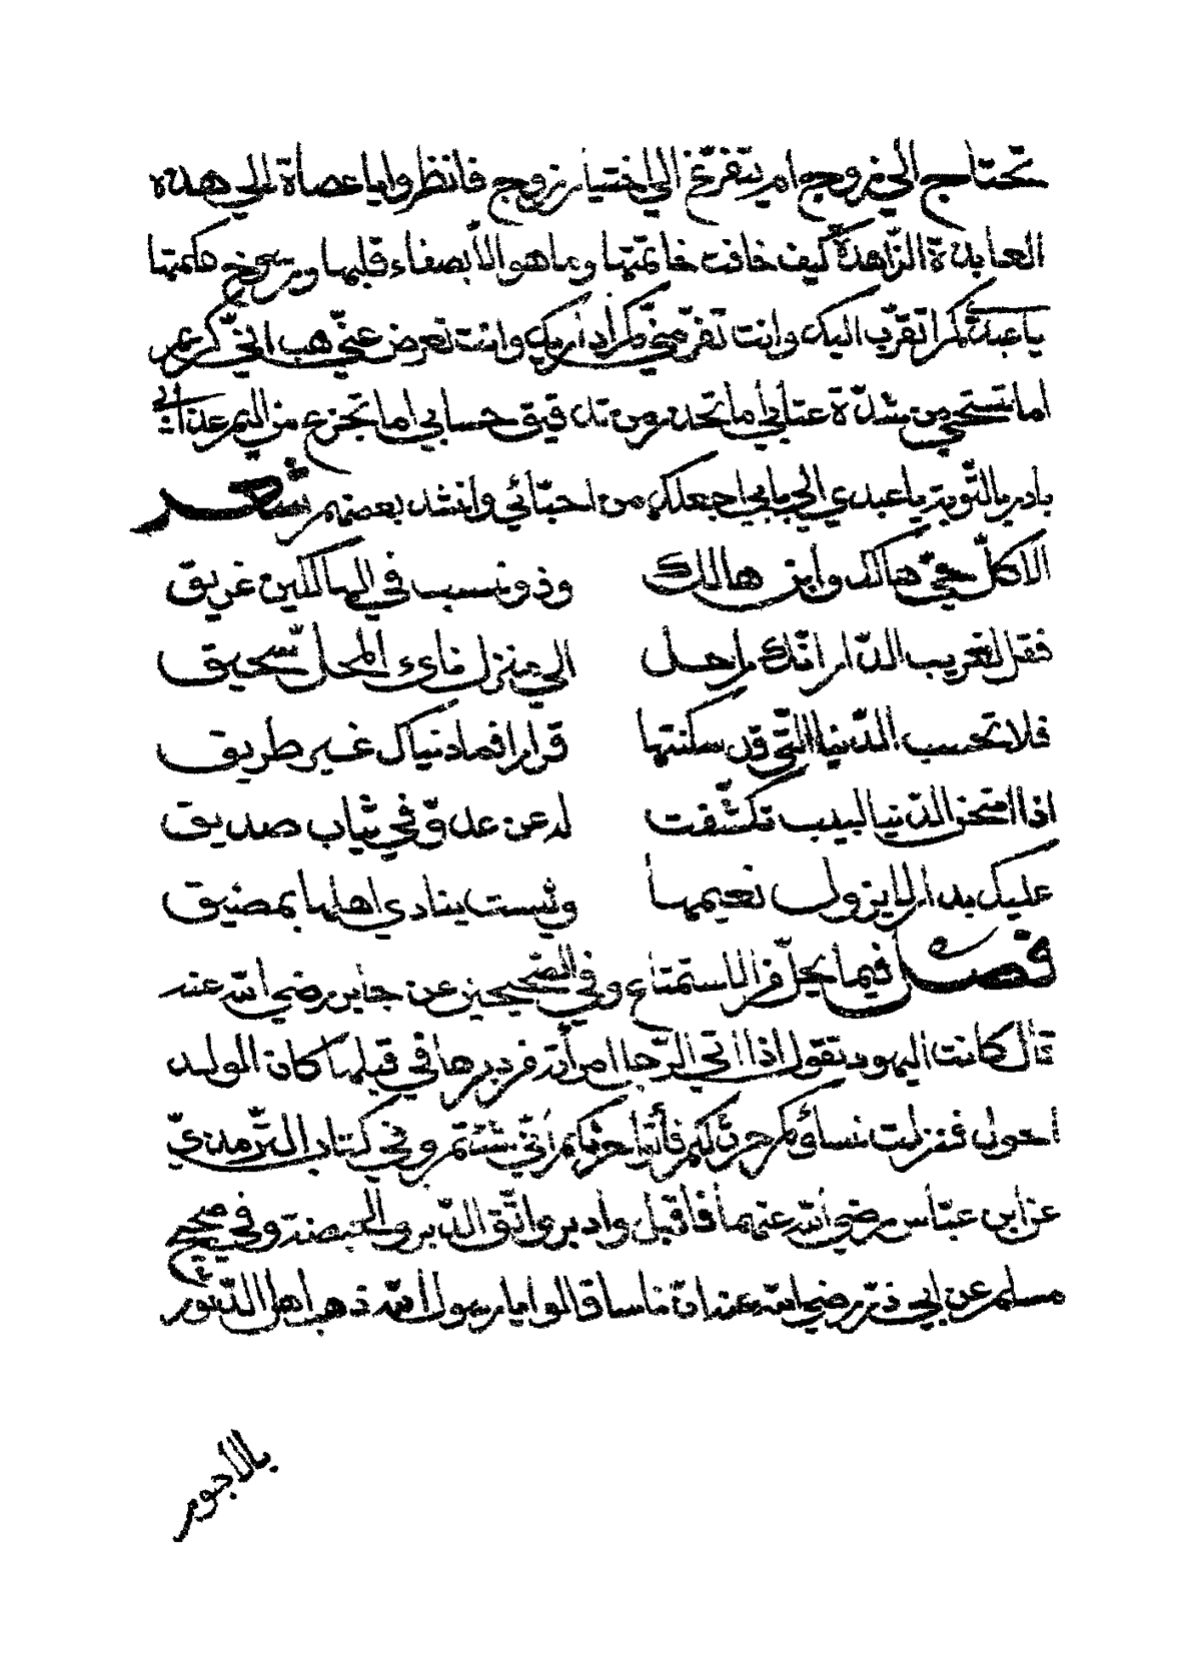 تحتاج الي زوج ام يتفرّغ الي اختيار زوج فانظروا يا عصاة الي هذه
العابدة الزّاهدة كيف خافت خاتمتها وما هو الا بصفاء قلبها ورسوخ حكمتها
يا عبدي كم اتقرّب اليك وانت تفرّ منّي كم أداريك وانت تعرض عنّي هب انّي كريم
اما تستحي من شدّة عتابي أما تحذر من تدقيق حسابي اما تجزع من اليم عذابي
بادر بالتّوبة يا عبدي الي بابي اجعلك من احبّائي وأنشد بعضهم شعر
الا كلّ حيّ هالك وابن هالك وذو نسب في الهالكين غريق
فقل لغريب الدّار انّك راحل الي منزل نايء المحلّ سحيق
فلا تحسب الدّنيا الّتي قد سكنتها قرارا فما دنياك غير طريق
اذا امتحن الدّنيا لبيب تكشّفت له عن عدوّ في ثياب صديق
عليك بدار لا يزول نعيمها وليست ينادي اهلها بمضيق
فصل فيما يحلّ من الاستمتاع وفي الصّحيحين عن جابر رضي الله عنه
قال كانت اليهود تقول اذا اتي الرّجل امرأته من دبرها في قبلها كان الولد
احول فنزلت نساؤكم حرث لكم فأتوا حرثكم أنّي شئتم وفي كتاب التّرمذيّ
عن ابن عبّاس رضي الله عنهما فأقبل وأدبر واتّق الدّبر والحيضة وفي صحيح
مسلم عن ابي ذرّ رضي الله عنه انّ ناسا قالوا يا رسول الله ذهب اهل الدّثور
بالأجور